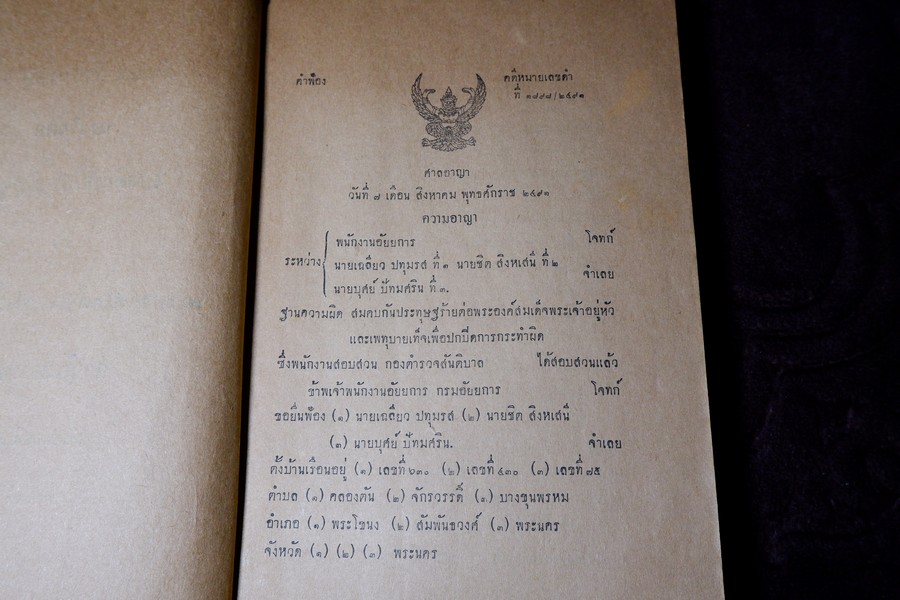 คำฟ้อง
คดีหมายเลขดำ
ที่ ๑๘๙๘/๒๔๙๑
ศาลอาญา
วันที่ ๗ เดือน สิงหาคม พุทธศักราช ๒๔๙๑
ความอาญา
ระหว่าง
พนักงานอัยยการ โจทก์
นายเฉลียว ปทุมรส ที่ ๑ นายชิต สิงหเสนี ที่ ๒
นายบุศย์ ปัทมศริน ที่ ๓. จำเลย
ฐานความผิด สมคบกันประทุษฐร้ายต่อพระองค์สมเด็จพระเจ้าอยู่หัว
และเพทุบายเท็จเพื่อปกปิดการกระทำผิด
ซึ่งพนักงานสอบสวน กองตำรวจสันติบาล ได้สอบสวนแล้ว
ข้าพเจ้าพนักงานอัยยการ กรมอัยยการ โจทก์
ขอยื่นฟ้อง (๑) นายเฉลียว ปทุมรส (๒) นายชิต สิงหเสนี
(๓) นายบุศย์ ปัทมศริน. จำเลย
ตั้งบ้านเรือนอยู่ (๑) เลขที่ ๖๓๐ (๒) เลขที่ ๔๓๐ (๓) เลขที่ ๗๕
ตำบล (๑) คลองตัน (๒) จักรวรรดิ์ (๓) บางขุนพรหม
อำเภอ (๑) พระโขนง (๒) สัมพันธวงศ์ (๓) พระนคร
จังหวัด (๑) (๒) (๓) พระนคร